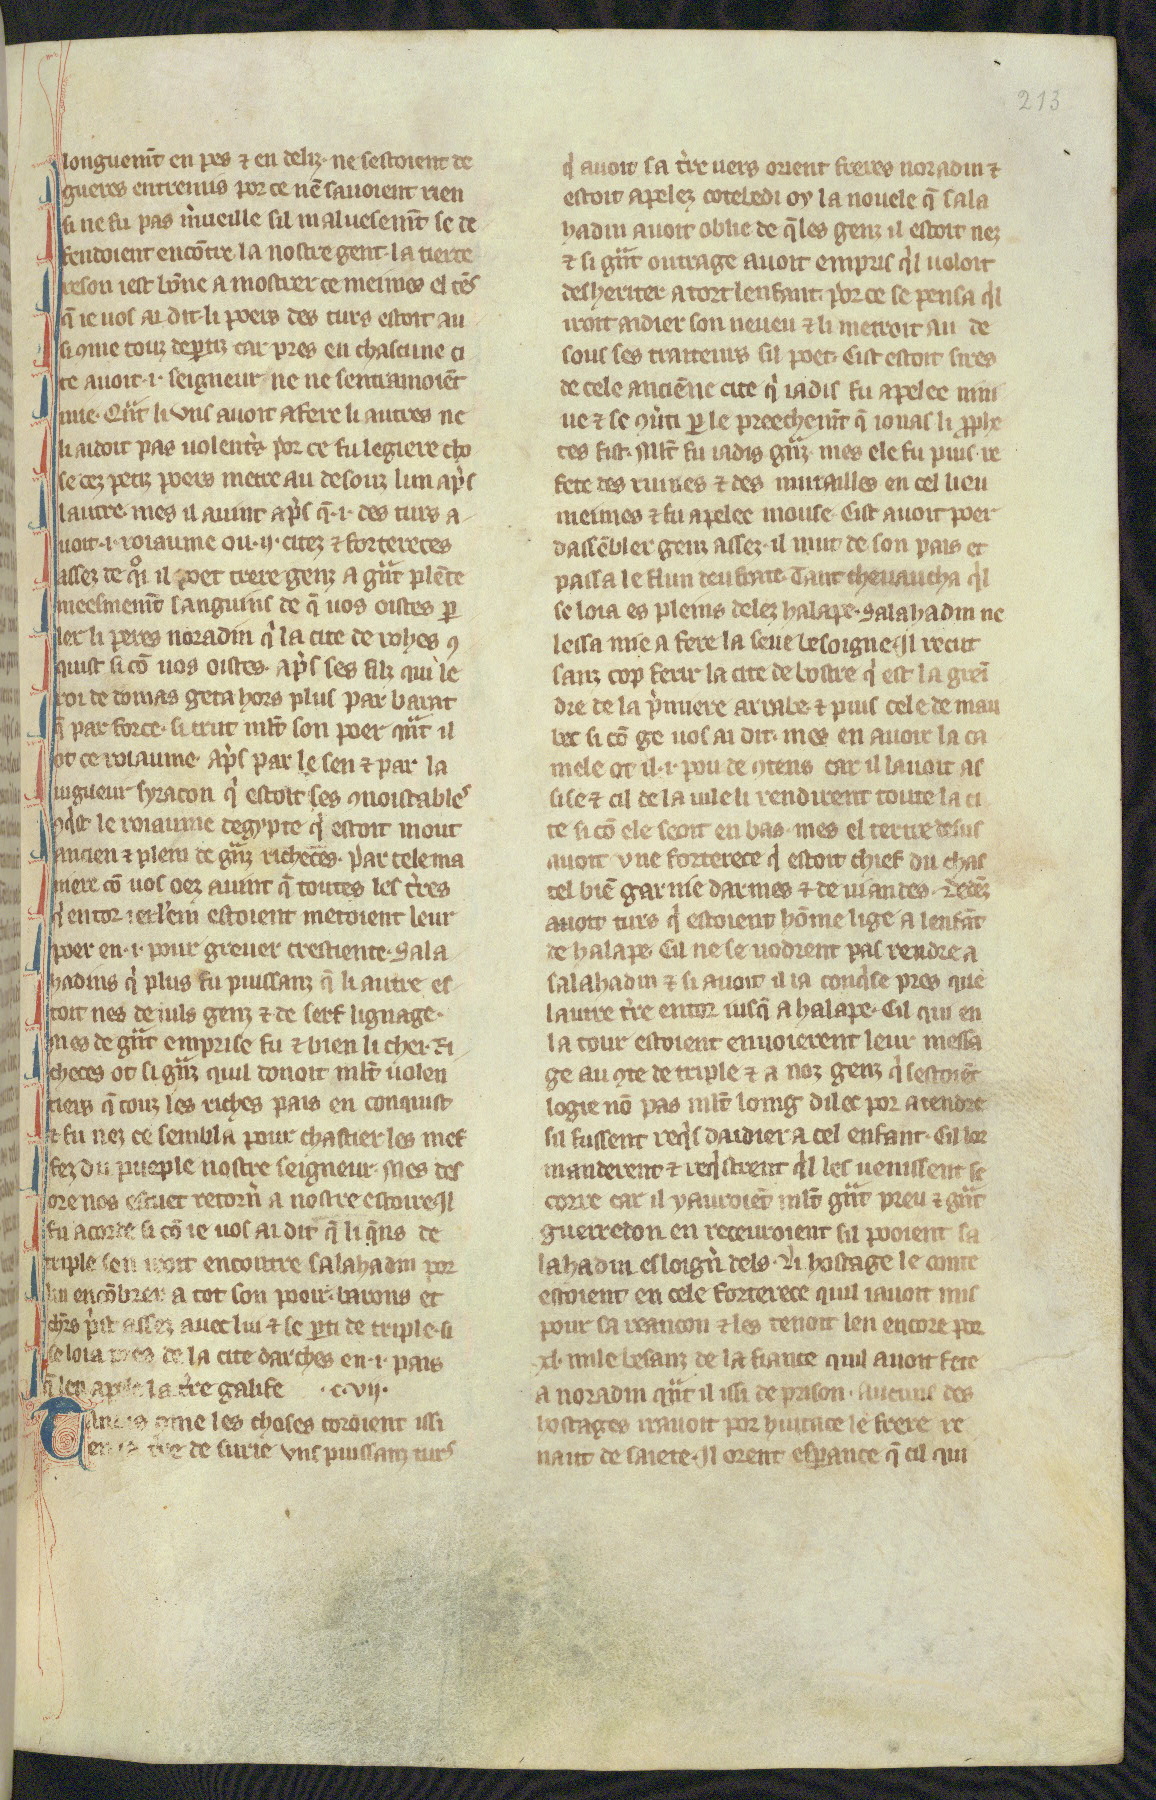 213
longuem̃t en pes ⁊ en deliz· ne sestoient de
gueres entremis por ce nẽ sauoient rien
si ne fu pas m̾ueille sil maluesem̃t se de
fendoient encõtre la nostre gent· la tierce
reson iest bõne a mostrer ce meimes el tẽs
q̃ ie uos ai dit· li poers des turs estoit au
si 9me touz dep̱tiz car pres en chascune ci
te auoit ·i· seigneur ne ne sentramoiẽt
mie· Qũt li vns auoit afere li autres ne
li aidoit pas uolent̾s por ce fu legiere cho
se cez petiz poers metre au desouz lun ap̾s
lautre· mes il auint ap̾s q̃ ·i· des turs a
uoit ·i· roiaume ou ·ii· citez ⁊ fortereces
assez de qͦi il poet trere genz a gũt plẽte
meesmem̃t sanguins de q̃ uos oistes p̱
ler li peres noradin q̾ la cite de rohes 9
quist si cõ uos oistes· ap̾s ses filz qui le
roi de domas geta hors plus par barat
q̃ par force· si crut ml̃t son poer qũt il
ot ce roiaume· Ap̾s par le sen ⁊ par la
uigueur syracon q̾ estoit ses 9noistables
9q̾st le roiaume degypte q̾ estoit mout
ancien ⁊ plein de gũz richeces· Par tele ma
niere cõ uos oez auint q̃ toutes les t̾res
q̾ entor ierl̾em estoient metoient leur
poer en ·i· pour greuer crestiente· Sala
hadins q̾ plus fu puissanz q̃ li autre es
toit nes de iuls genz ⁊ de serf lignage·
mes de gũt emprise fu ⁊ bien li cher· Ri
checes ot si gũz quil donoit ml̃t uolen
tiers q̃ touz les riches pais en conquist
⁊ fu nez ce sembla pour chastier les mef
fez du pueple nostre seigneur· Mes des
ore nos estuet retorn̾ a nostre estoire Il
fu acorde si cõ ie uos ai dit q̃ li q̃ns de
triple sen iroit encontre salahadin por
lui encõbrer a tot son pooir· barons et
ch̾rs p̾st assez auec lui ⁊ se p̱ti de triple· si
se loia pres de la cite darches en ·i· pais
q̃ len apele la t̾re galife ·c·vij·
Tandis 9me les choses coroient issi
en la t̾re de surie vns puissanz turs
q̾ auoit sa t̾re uers orient freres noradin ⁊
estoit apelez coteledi oy la nouele q̃ sala
hadin auoit oblie de q̃les genz il estoit nez
⁊ si gũt outrage auoit empris q̾l uoloit
desheriter a tort lenfant· por ce se pensa q̾l
iroit aidier son neueu ⁊ li metroit au de
sous ses traiteurs sil poet· Cist estoit sires
de cele anciẽne cite q̾ iadis fu apelee nini
ue ⁊ se 9u̾ti p̱ le preechem̃t q̃ ionas li p̱phe
tes fist· Ml̃t fu iadis gũz· mes ele fu puis re
fete des ruines ⁊ des murailles en cel lieu
meimes ⁊ fu apelee mouse· Cist auoit poer
dassẽbler genz assez· il mut de son pais et
passa le flun deufrate· Tant cheuaucha q̾l
se loia es pleins delez halape· Salahadin ne
lessa mie a fere la seue besoigne Il recut
sanz cop ferir la cite de bostre q̾ est la grei
dre de la p̾miere arrabe· ⁊ puis cele de mau
bec si cõ ge uos ai dit· mes en auoir la ca
mele ot il ·i· pou de 9tens car il lauoit as
sise ⁊ cil de la uile li rendirent toute la ci
te si cõ ele seoit en bas· mes el tertre desus
auoit vne forterece q̾ estoit chief du chas
tel biẽ garnie darmes ⁊ de uiandes· Dedẽz
auoit turs q̾ estoient hõme lige a lenfãt
de halape· Cil ne se uodrent pas rendre a
salahadin ⁊ si auoit il ia conq̾se pres que
lautre t̾re entor iusq̃ a halape· Cil qui en
la tour estoient enuoierent leur messa
ge au 9te de triple ⁊ a noz genz q̾ sestoiẽt
logie nõ pas ml̃t loing dilec por atendre
sil fussent req̾s daidier a cel enfant· Cil lor
manderent ⁊ req̾strent q̾l les uenissent se
corre car il y auroiẽt ml̃t gũt preu ⁊ gũt
guerredon en receuroient sil pooient sa
lahadin esloign̾ dels· Li hostage le conte
estoient en cele forterece quil iauoit mis
pour sa reancon ⁊ les tenoit len encore por
·xl· mile besanz de la fiance quil auoit fete
a noradin qũt il issi de prison· Aucuns des
hostages irauoit por huitace le frere re
naut de saiete· Il orent esp̱ance q̃ cil qui